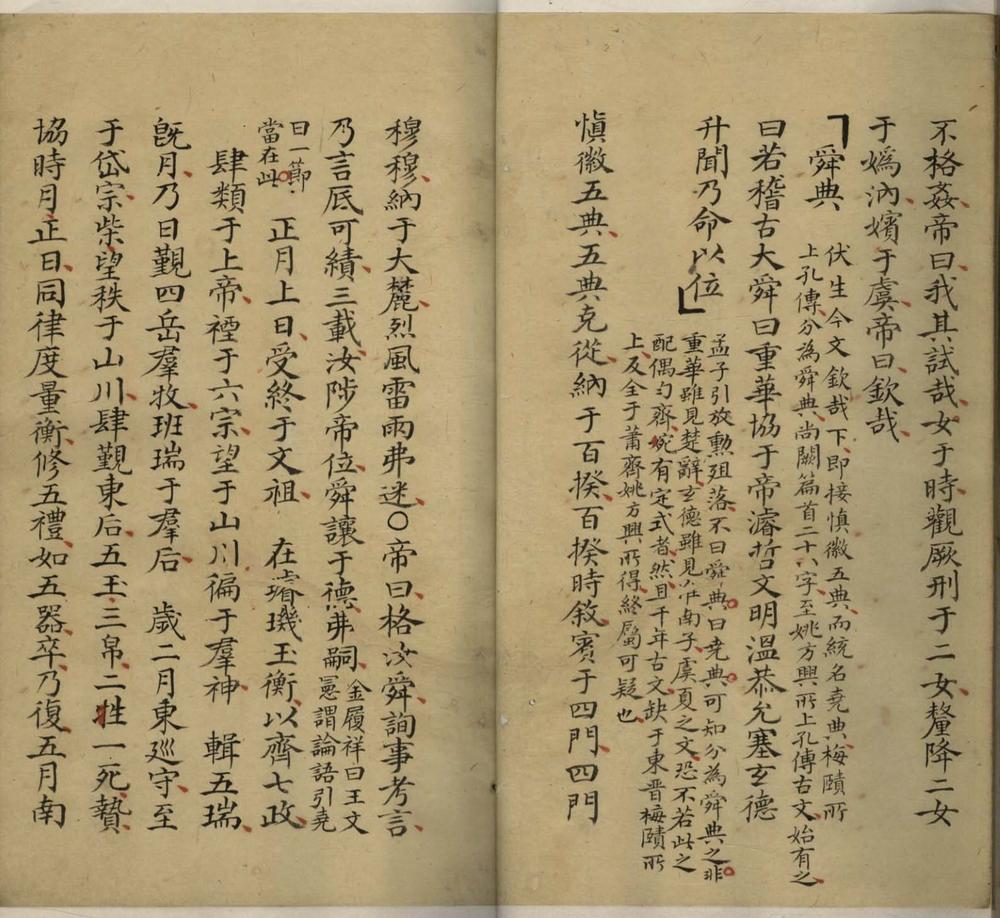 不格姦帝曰我其試哉女于時觀厥刑于二女釐降二女
于嬀汭嬪于虞帝曰欽哉
舜典
伏生今文欽哉下即接愼徽五典而統名堯典梅賾所
上孔傳分為舜典尚闕篇首二十八字至姚方興所上孔傳古文始有之
曰若稽古大舜曰重華協于帝濬哲文明溫恭允塞玄德
升聞乃命以位
孟子引放勲殂落不曰舜典曰堯典可知分為舜典之非
重華雖見楚辭玄德雖見淮南子虞夏之文恐不若此之
配偶勻齊宛有定式者然且千年古文缺于東晋梅賾所
上及全于蕭齊姚方興所得終屬可疑也
愼徽五典五典克從納于百揆百揆時敘賓于四門四門
穆穆納于大麓烈風雷雨弗迷○帝曰格汝舜詢事考言
乃言底可績三載汝陟帝位舜讓于德弗嗣
金履祥曰王文
憲謂論語引堯
曰一節
當在此
正月上日受終于文祖 在璿璣玉衡以齊七政
肆類于上帝禋于六宗望于山川徧于羣神 輯五瑞
旣月乃日覲四岳羣牧班瑞于羣后 歲二月東廵守至
于岱宗柴望秩于山川肆覲東后五玉三帛二牲一死贄
協時月正日同律度量衡修五禮如五器卒乃復五月南